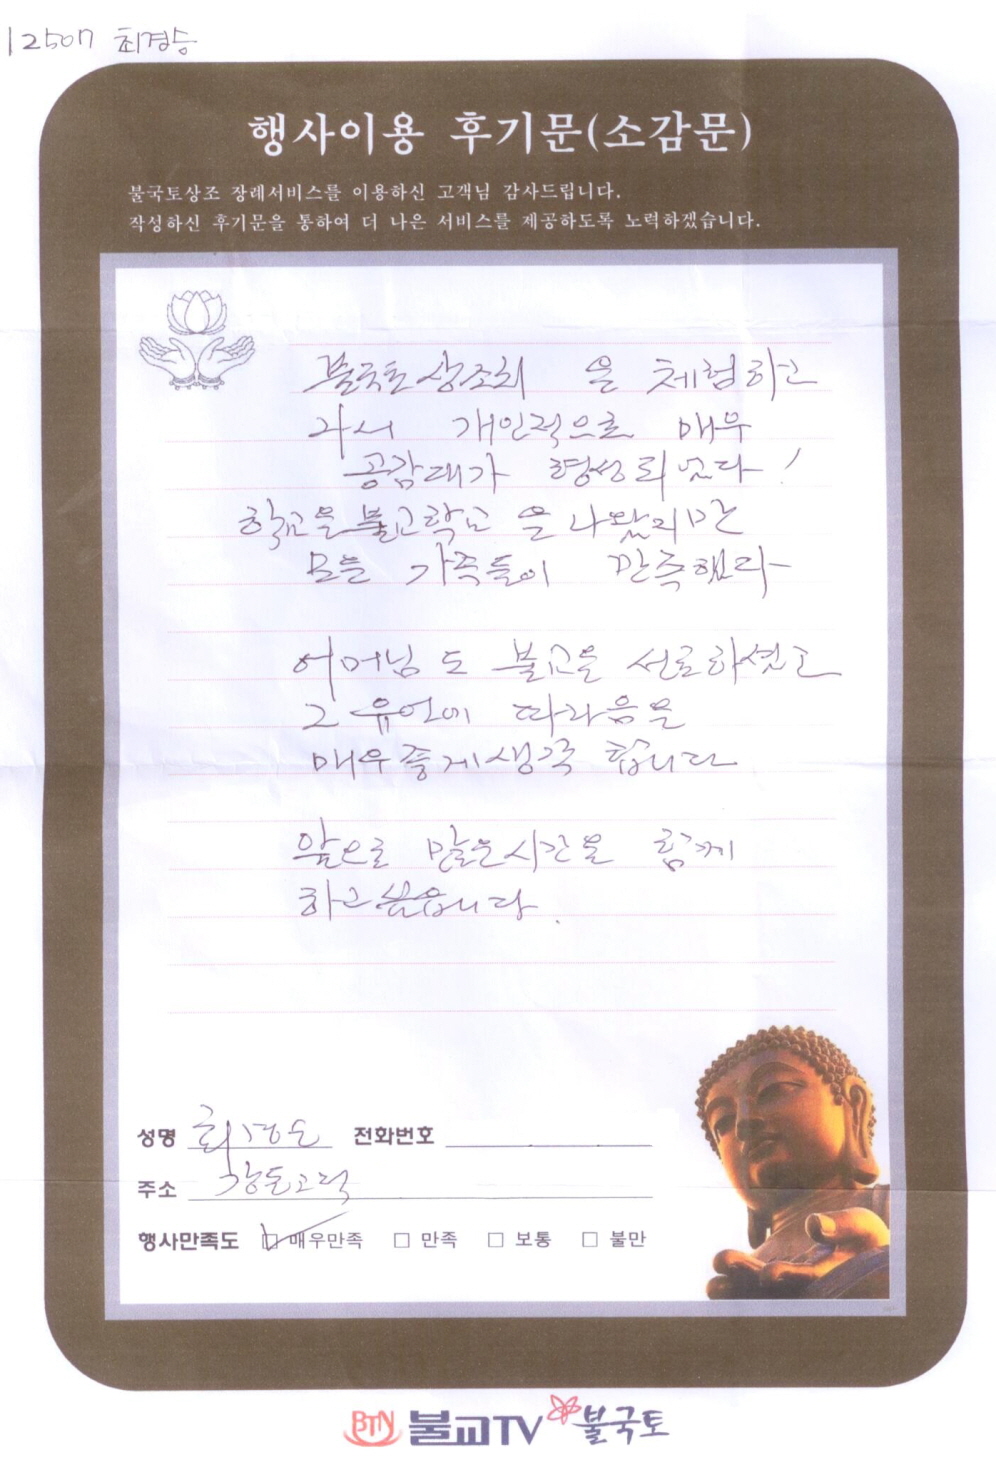 12507 최경승
행사이용 후기문(소감문)
불국토상조 장례서비스를 이용하신 고객님 감사드립니다.
작성하신 후기문을 통하여 더 나은 서비스를 제공하도록 노력하겠습니다.
불국토상조회 을 체험하고
나서 개인적으로 매우
공감대가 형성되었다!
학교을 불교학교 을 나왔지만
모든 가족들이 만족했다
어머님도 불교을 선호하셧고
그 유언에 따라음을
매우 좋게생각 합니다
앞으로 많은시간을 함께
하고싶읍니다.
성명 최경승 전화번호
주소 강동고덕
행사만족도 ☑ 매우만족 □ 만족 □ 보통 □ 불만
BTN 불교TV 불국토